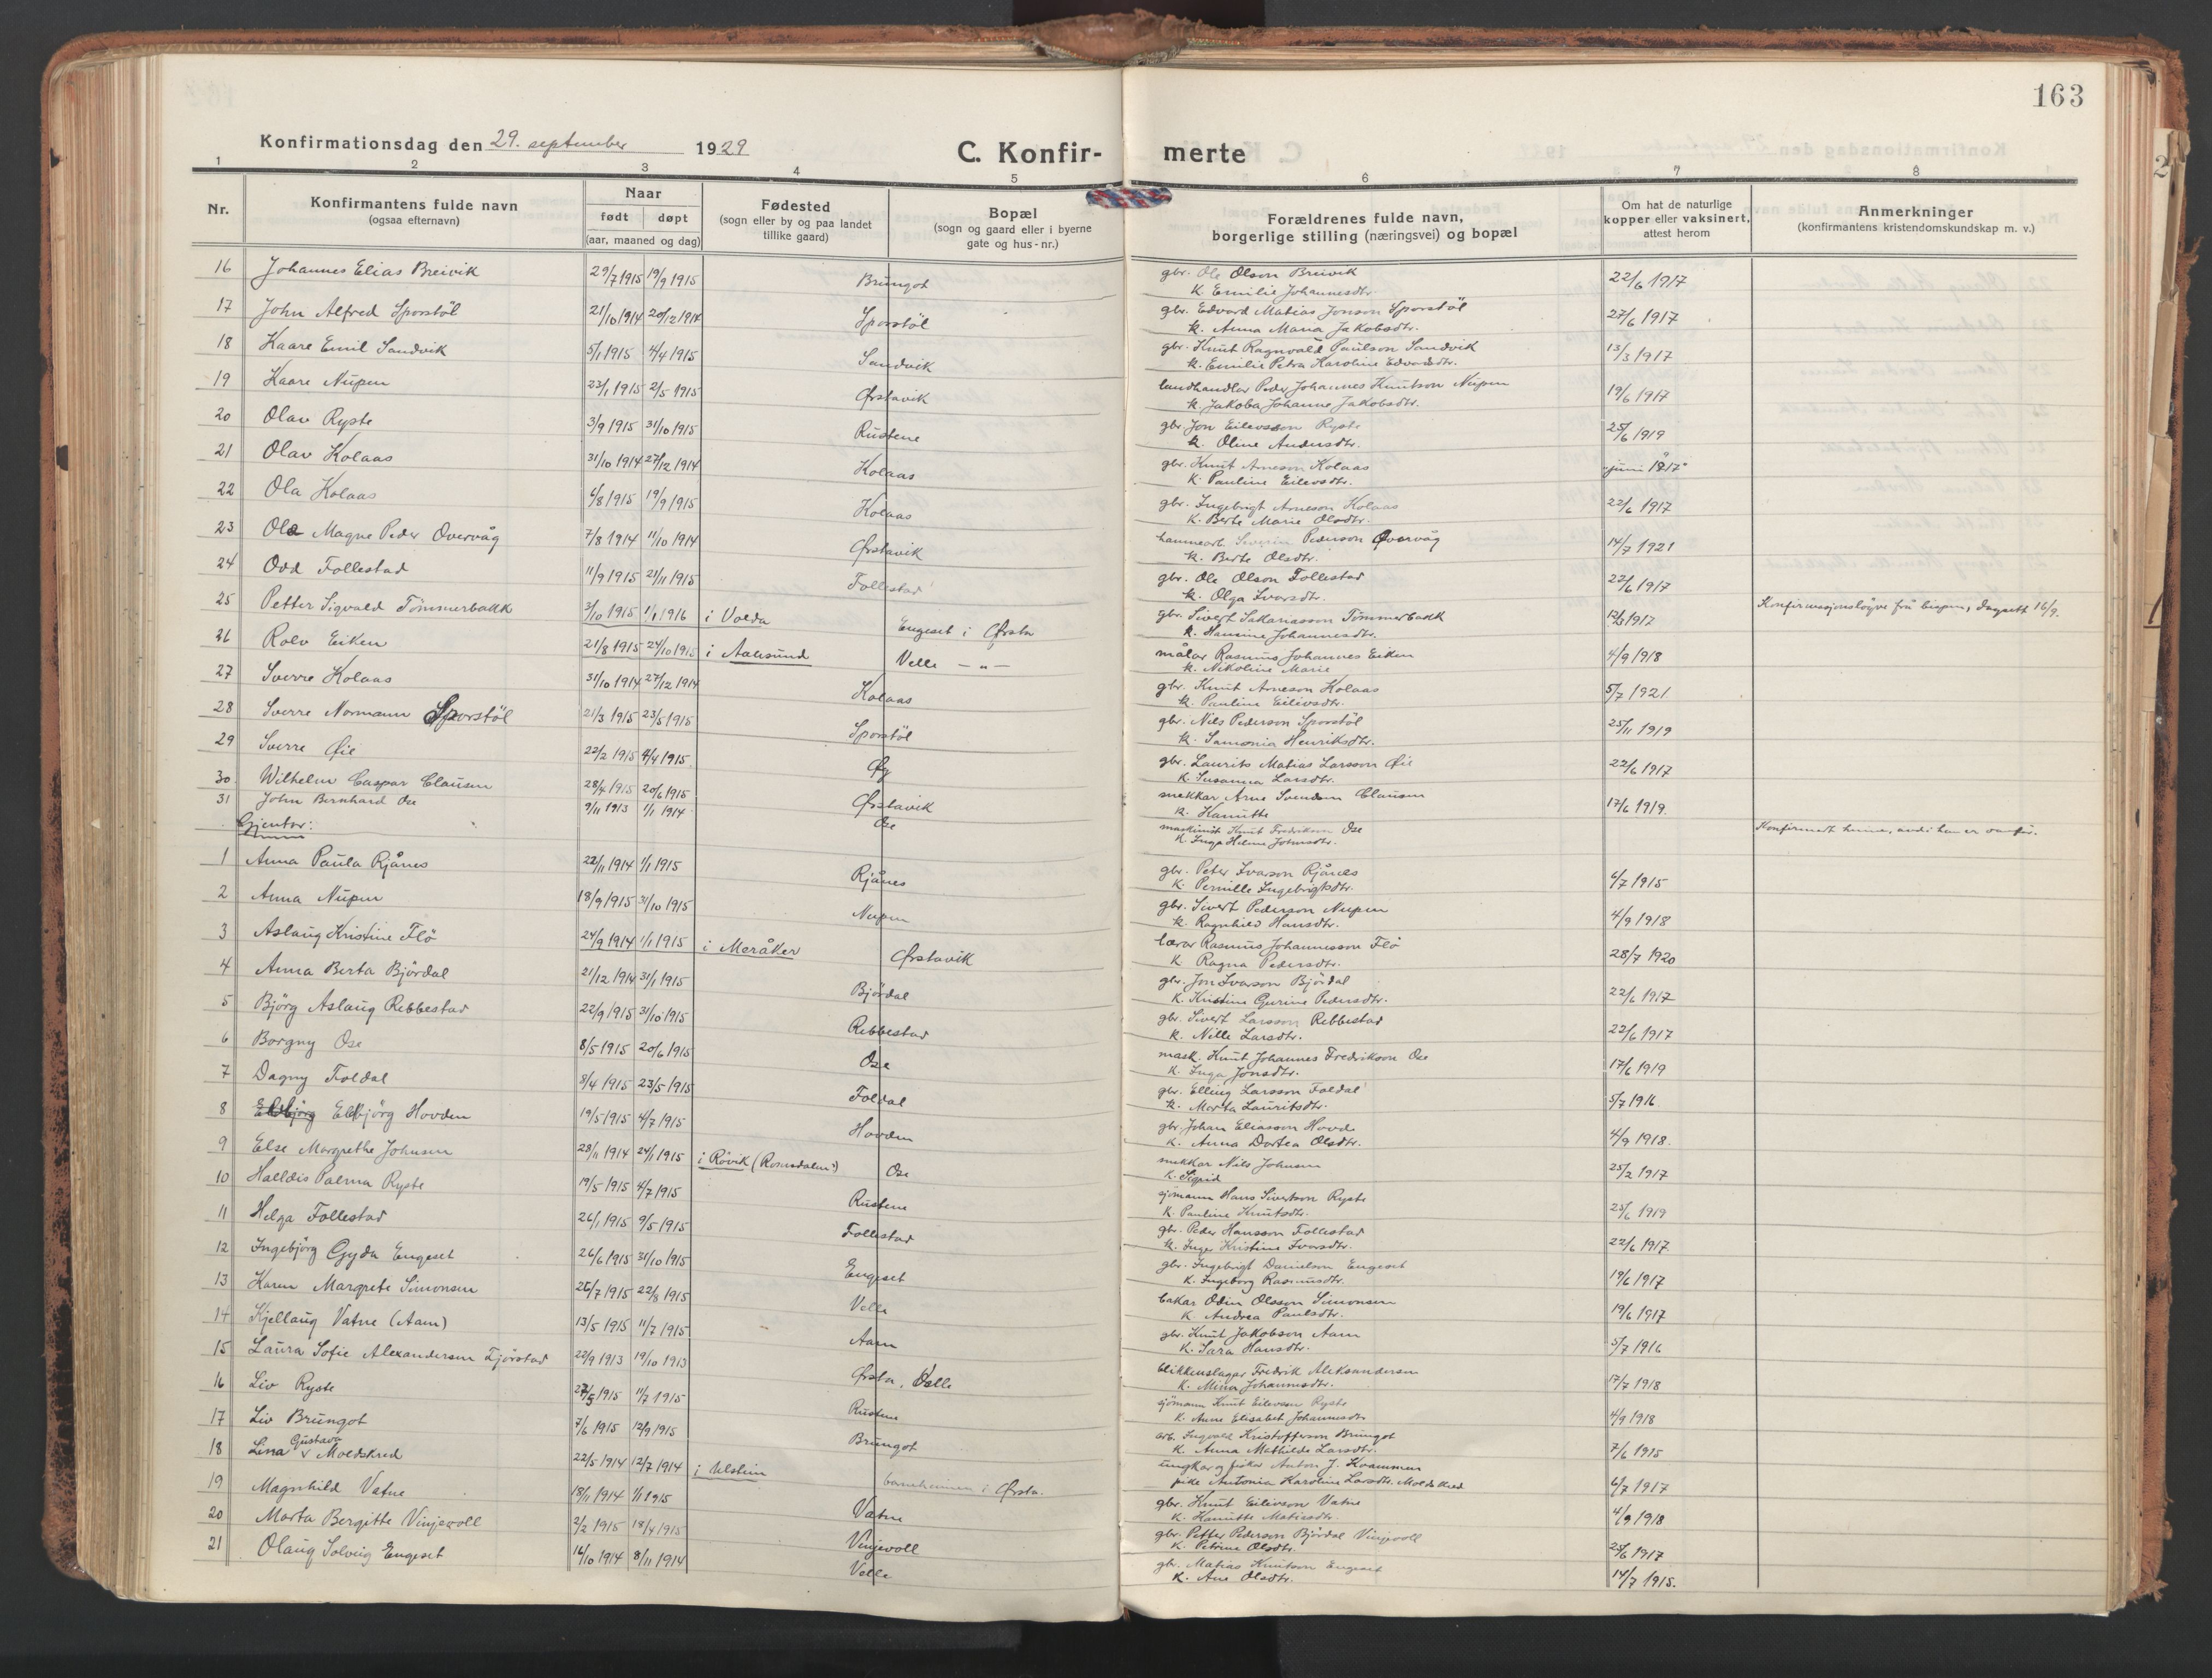 163
Konfirmationsdag den 29. september 1929
C. Konfir- merte
1 2 3 4 5 6 7 8
Nr.
Konfirmantens fulde navn
(ogsaa efternavn)
Naar
født døpt
(aar, maaned og dag)
Fødested
(sogn eller by og paa landet
tillike gaard)
Bopæl
(sogn og gaard eller i byerne
gate og hus-nr.)
Forældrenes fulde navn,
borgerlige stilling (næringsvei) og bopæl
Om hat de naturlige
kopper eller vaksinert,
attest herom
Anmerkninger
(konfirmantens kristendomskundskap m. v.)
16 Johannes Elias Breivik 29/7 1915 19/9 1915 Brungot gbr. Ole Olson Breivik 22/6 1917
k. Emilie Johannesdtr.
17 John Alfred Sporstöl 21/10 1914 20/12 1914 Sporstöl gbr. Edvard Matias Jonson Sporstöl 27/6 1917
k. Anna Maria Jakobsdtr.
18 Kaare Emil Sandvik 5/1 1915 4/4 1915 Sandvik gbr. Knut Ragnvald Paulson Sandvik 13/3 1917
k. Emilie Petra Karoline Edvardsdtr.
19 Kaare Nupen 23/1 1915 2/5 1915 Ørstavik landhandlar Peder Johannes Knutson Nupen 19/6 1917
k. Jakoba Johanne Jakobsdtr.
20 Olav Ryste 3/9 1915 31/10 1915 Rustene gbr. Jon Eilevsson Ryste 25/6 1919
k. Oline Andersdtr.
21 Olav Kolaas 31/10 1914 27/12 1914 Kolaas gbr. Knut Arneson Kolaas juni 1917
k. Pauline Eilevsdtr.
22 Ola Kolaas 6/8 1915 19/9 1915 Kolaas gbr. Ingebrigt Arneson Kolaas 22/6 1917
k. Berte Marie Olsdtr.
23 Ola Magne Peder Overvåg 7/8 1914 11/10 1914 Ørstavik hamnearb. Severin Pederson Overvåg 14/7 1921
k. Berte Olsdtr.
24 Odd Follestad 11/9 1915 21/11 1915 Follestad gbr. Ole Olson Follestad 22/6 1917
k. Olga Ivarsdtr.
25 Petter Sigvald Tömmerbakk 3/10 1915 1/1 1916 i Volda Engeset i Ørsta gbr. Sivert Sakariasson Tömmerbakk 12/3 1917 Konfirmasjonslöyve frå bispen, dagsett 16/9.
k. Hansine Johannesdtr.
26 Rolv Eiken 21/8 1915 24/10 1915 i Aalesund Velle — „ — målar Rasmus Johannes Eiken 4/9 1918
k. Nikoline Marie
27 Sverre Kolaas 31/10 1914 27/12 1914 Kolaas gbr. Knut Arneson Kolaas 5/7 1921
k. Pauline Eilevsdtr.
28 Sverre Normann Sporstöl 21/3 1915 23/5 1915 Sporstöl gbr. Nils Pederson Sporstöl 25/11 1919
k. Samonia Henriksdtr.
29 Sverre Øie 22/2 1915 4/4 1915 Øy gbr. Laurits Matias Larsson Øie 22/6 1917
k. Susanna Larsdtr.
30 Wilhelm Caspar Clausen 28/4 1915 20/6 1915 Ørstavik snekkar Arne Svendsen Clausen 17/6 1919
k. Hanutte
31 John Bernhard Ose 9/11 1913 1/1 1914 Ose maskinist Knut Fredrikson Ose Konfirmert heime, avdi han er vanfør.
k. Inga Heline Johnsdtr.
Gjentor:
1 Anna Paula Rjånes 22/11 1914 1/1 1915 Rjånes gbr. Peter Ivarson Rjånes 6/7 1915
k. Pernille Ingebrigtsdtr.
2 Anna Nupen 18/9 1915 31/10 1915 Nupen gbr. Sivert Pederson Nupen 4/9 1918
k. Ragnhild Hansdtr.
3 Aslaug Kristine Flö 24/9 1914 1/1 1915 i Meråker Ørstavik lærar Rasmus Johannesson Flö 28/7 1920
k Ragna Pedersdtr.
4 Anna Berta Björdal 21/12 1914 31/1 1915 Björdal gbr. Jon Ivarson Björdal 22/6 1917
k. Kristine Gurine Pedersdtr.
5 Björg Aslaug Rebbestad 22/9 1915 31/10 1915 Rebbestad gbr. Sivert Larsson Rebbestad 22/6 1917
k. Nille Larsdtr.
6 Borgny Ose 8/5 1915 20/6 1915 Ose mask. Knut Johannes Fredrikson Ose 17/6 1919
k. Inga Jonsdtr.
7 Dagny Foldal 8/4 1915 23/5 1915 Foldal gbr. Elling Larsson Foldal 5/7 1916
k. Marta Lauritsdtr.
8 Eldbjörg Hovden 19/5 1915 4/7 1915 Hovden gbr. Johan Eliasson Hovde 4/9 1918.
k. Anna Dortea Olsdtr.
9 Else Margrethe Johnsen 28/11 1914 24/1 1915 i Rövik (Romsdalen) Ose snekkar Nils Johnsen 25/2 1917
k. Sigrid
10 Halldis Palma Ryste 19/5 1915 4/7 1915 Rustene sjömann Hans Sivertson Ryste 25/6 1919
k. Pauline Knutsdtr.
11 Helga Follestad 26/1 1915 9/5 1915 Follestad gbr. Peder Hansson Follestad 22/6 1917
k. Inger Kristine Ivarsdtr.
12 Ingebjörg Gyda Engeset 26/6 1915 31/10 1915 Engeset gbr. Ingebrigt Danielson Engeset 19/6 1917
k. Ingeborg Rasmusdtr.
13 Karen Margrete Simonsen 25/7 1915 22/8 1915 Velle bakar Odin Olsson Simonsen 19/6 1917
k Andrea Paulsdtr.
14 Kjellaug Vatne (Aam) 13/5 1915 11/7 1915 Aam gbr. Knut Jakobson Aam 5/7 1916
k. Sara Hansdtr.
15 Laura Sofie Alexandersen 22/9 1913 19/10 1913 Ørsta, Velle blikkenslager Fredrik Aleksandersen 17/7 1918
k. Mina Johannesdtr.
16 Liv Ryste 27/5 1915 11/7 1915 Rustene sjömann Knut Eilevson Ryste 4/9 1918
k. Anne Elisabet Johannesdtr
17 Liv Brungot 7/6 1915 12/9 1915 Brungot arb. Ingvald Kristofferson Brungot 7/6 1915
k. Anna Mathilde Larsdtr.
18 Lina Gustava Moldskred 22/5 1914 12/7 1914 i Ulstein barneheimen i Ørsta. ungkar og fiskar Anton J. Kvammen 6/7 1917
pike Antonia Karoline Larsdtr. Moldskred
19 Magnhild Vatne 18/11 1914 1/1 1915 Vatne gbr. Knut Eilevson Vatne 4/9 1918
k. Hanutte Matiasdtr.
20 Marta Bergitte Vinjevoll 2/2 1915 18/4 1915 Vinjevoll gbr. Petter Pederson Björdal Vinjevoll 25/6 1917
k. Petrine Olsdtr.
21 Olaug Solveig Engeset 16/10 1914 8/11 1914 Velle gbr. Matias Knutson Engeset 14/7 1915.
k. Ane Olsdtr.